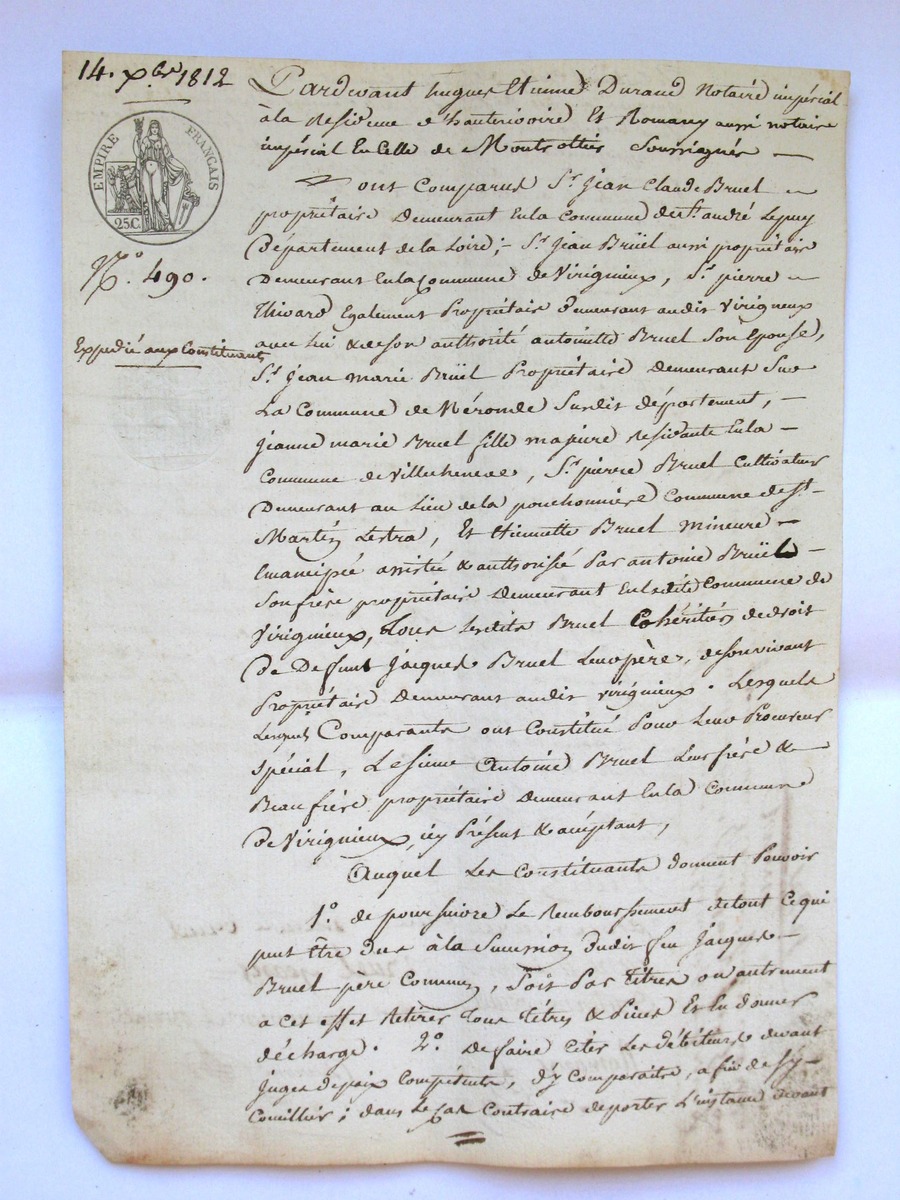 14. xbre 1812
EMPIRE FRANÇAIS
25C.
N.º 490.
Expédié aux Constituants
Pardevant hugues Etienne Durand Notaire impérial
à la Residence d'hauterivoire Et Romany aussi notaire
impérial En Celle de Montrottier Soussignés —
Sont Comparus Sr. Jean Claude Bruel —
propriétaire Demeurant En la Commune de St. andré Lepuy
Département de la Loire; — Sr. Jean Brüel aussi propriétaire
Demeurant En la Commune de Virignieux, Sr. pierre —
Thivard Egalement Propriétaire demeurant audit Virigneux
avec lui & de son authorité antoinette Bruel Son Epouse,
Sr. Jean marie Brüel Propriétaire demeurant Sur
La Commune de Néronde Susdit département, —
Jeanne marie Bruel fille majeure Residante En la —
Commune de Villechenève, Sr. pierre Bruel Cultivateur
Demeurant au Lieu de la pouchonnière Commune de St.
Martin Lestra, Et Etiennette Bruel mineure —
Emancipée assistée & authorisée Par antoine Brüel —
Son frère propriétaire Demeurant En ladite Commune de
Virignieux, Tous Lesdits Bruel Cohéritiers de droit
De Defunt Jacques Bruel Leur père, de son vivant
Propriétaire demeurant audit virignieux. Lesquels
Lesquels Comparants ont Constitué Pour Leur Procureur
Spécial, Le sieur Antoine Bruel Leur frère &
Beau frère propriétaire Demeurant En la Commune
De Virignieux, icy Présent & acceptant,
Auquel Les Constituants donnent Pouvoir
1º. de poursuivre Le Remboursement de tout Ce qui
peut Être due à la Succession dudit feu Jacques —
Bruel père Commun, Soit Par Titres ou autrement
a Cet effet Retirer Tous Titres & Pièces Et En donner
décharge. 2º. de faire Citer Les débiteurs devant
Juges de paix Compétents, d'y Comparaitre, a fin de S'y
Concillier; dans Le Cas Contraire de porter L'instance devant